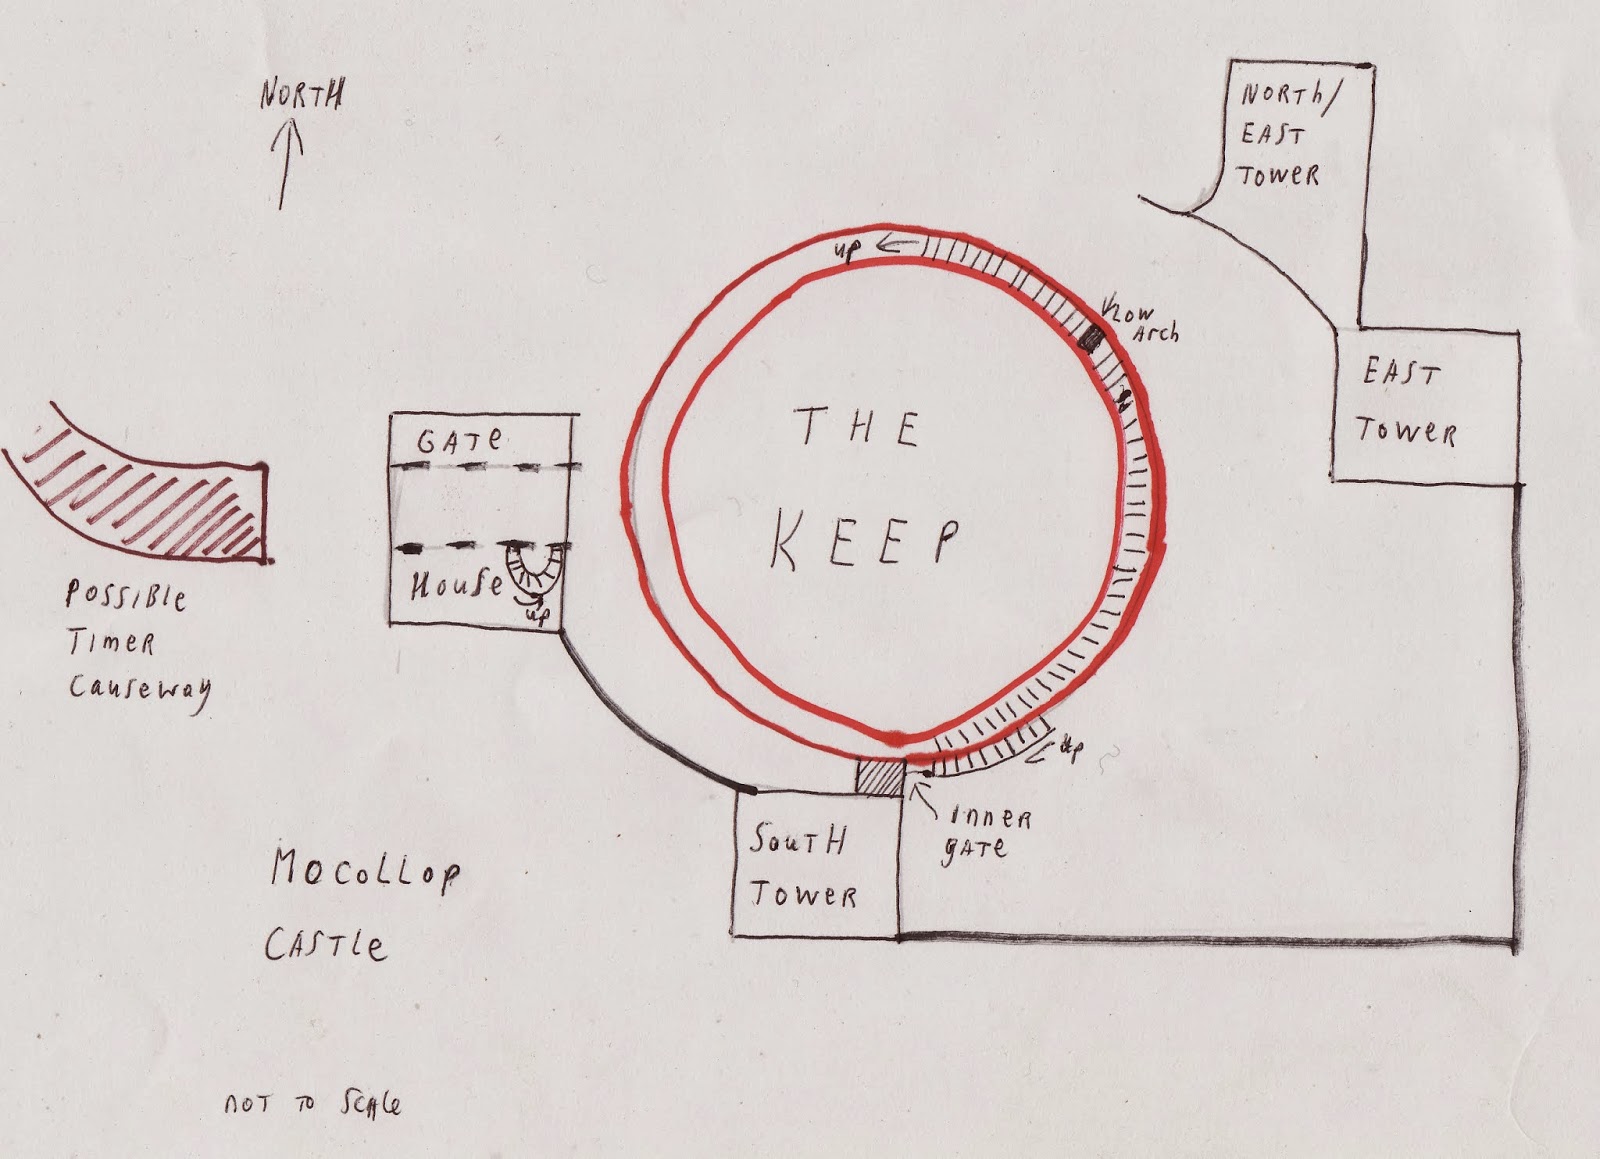 NORTH
NORTh/
EAST
TOWER
up
Low
Arch
EAST
TOWER
THE
KEEP
GATe
House
up
POSSIBLE
TIMER
CAUSEWAY
up
INNER
GATE
SOUTH
TOWER
MOCOLLOP
CASTLE
NOT TO SCALE